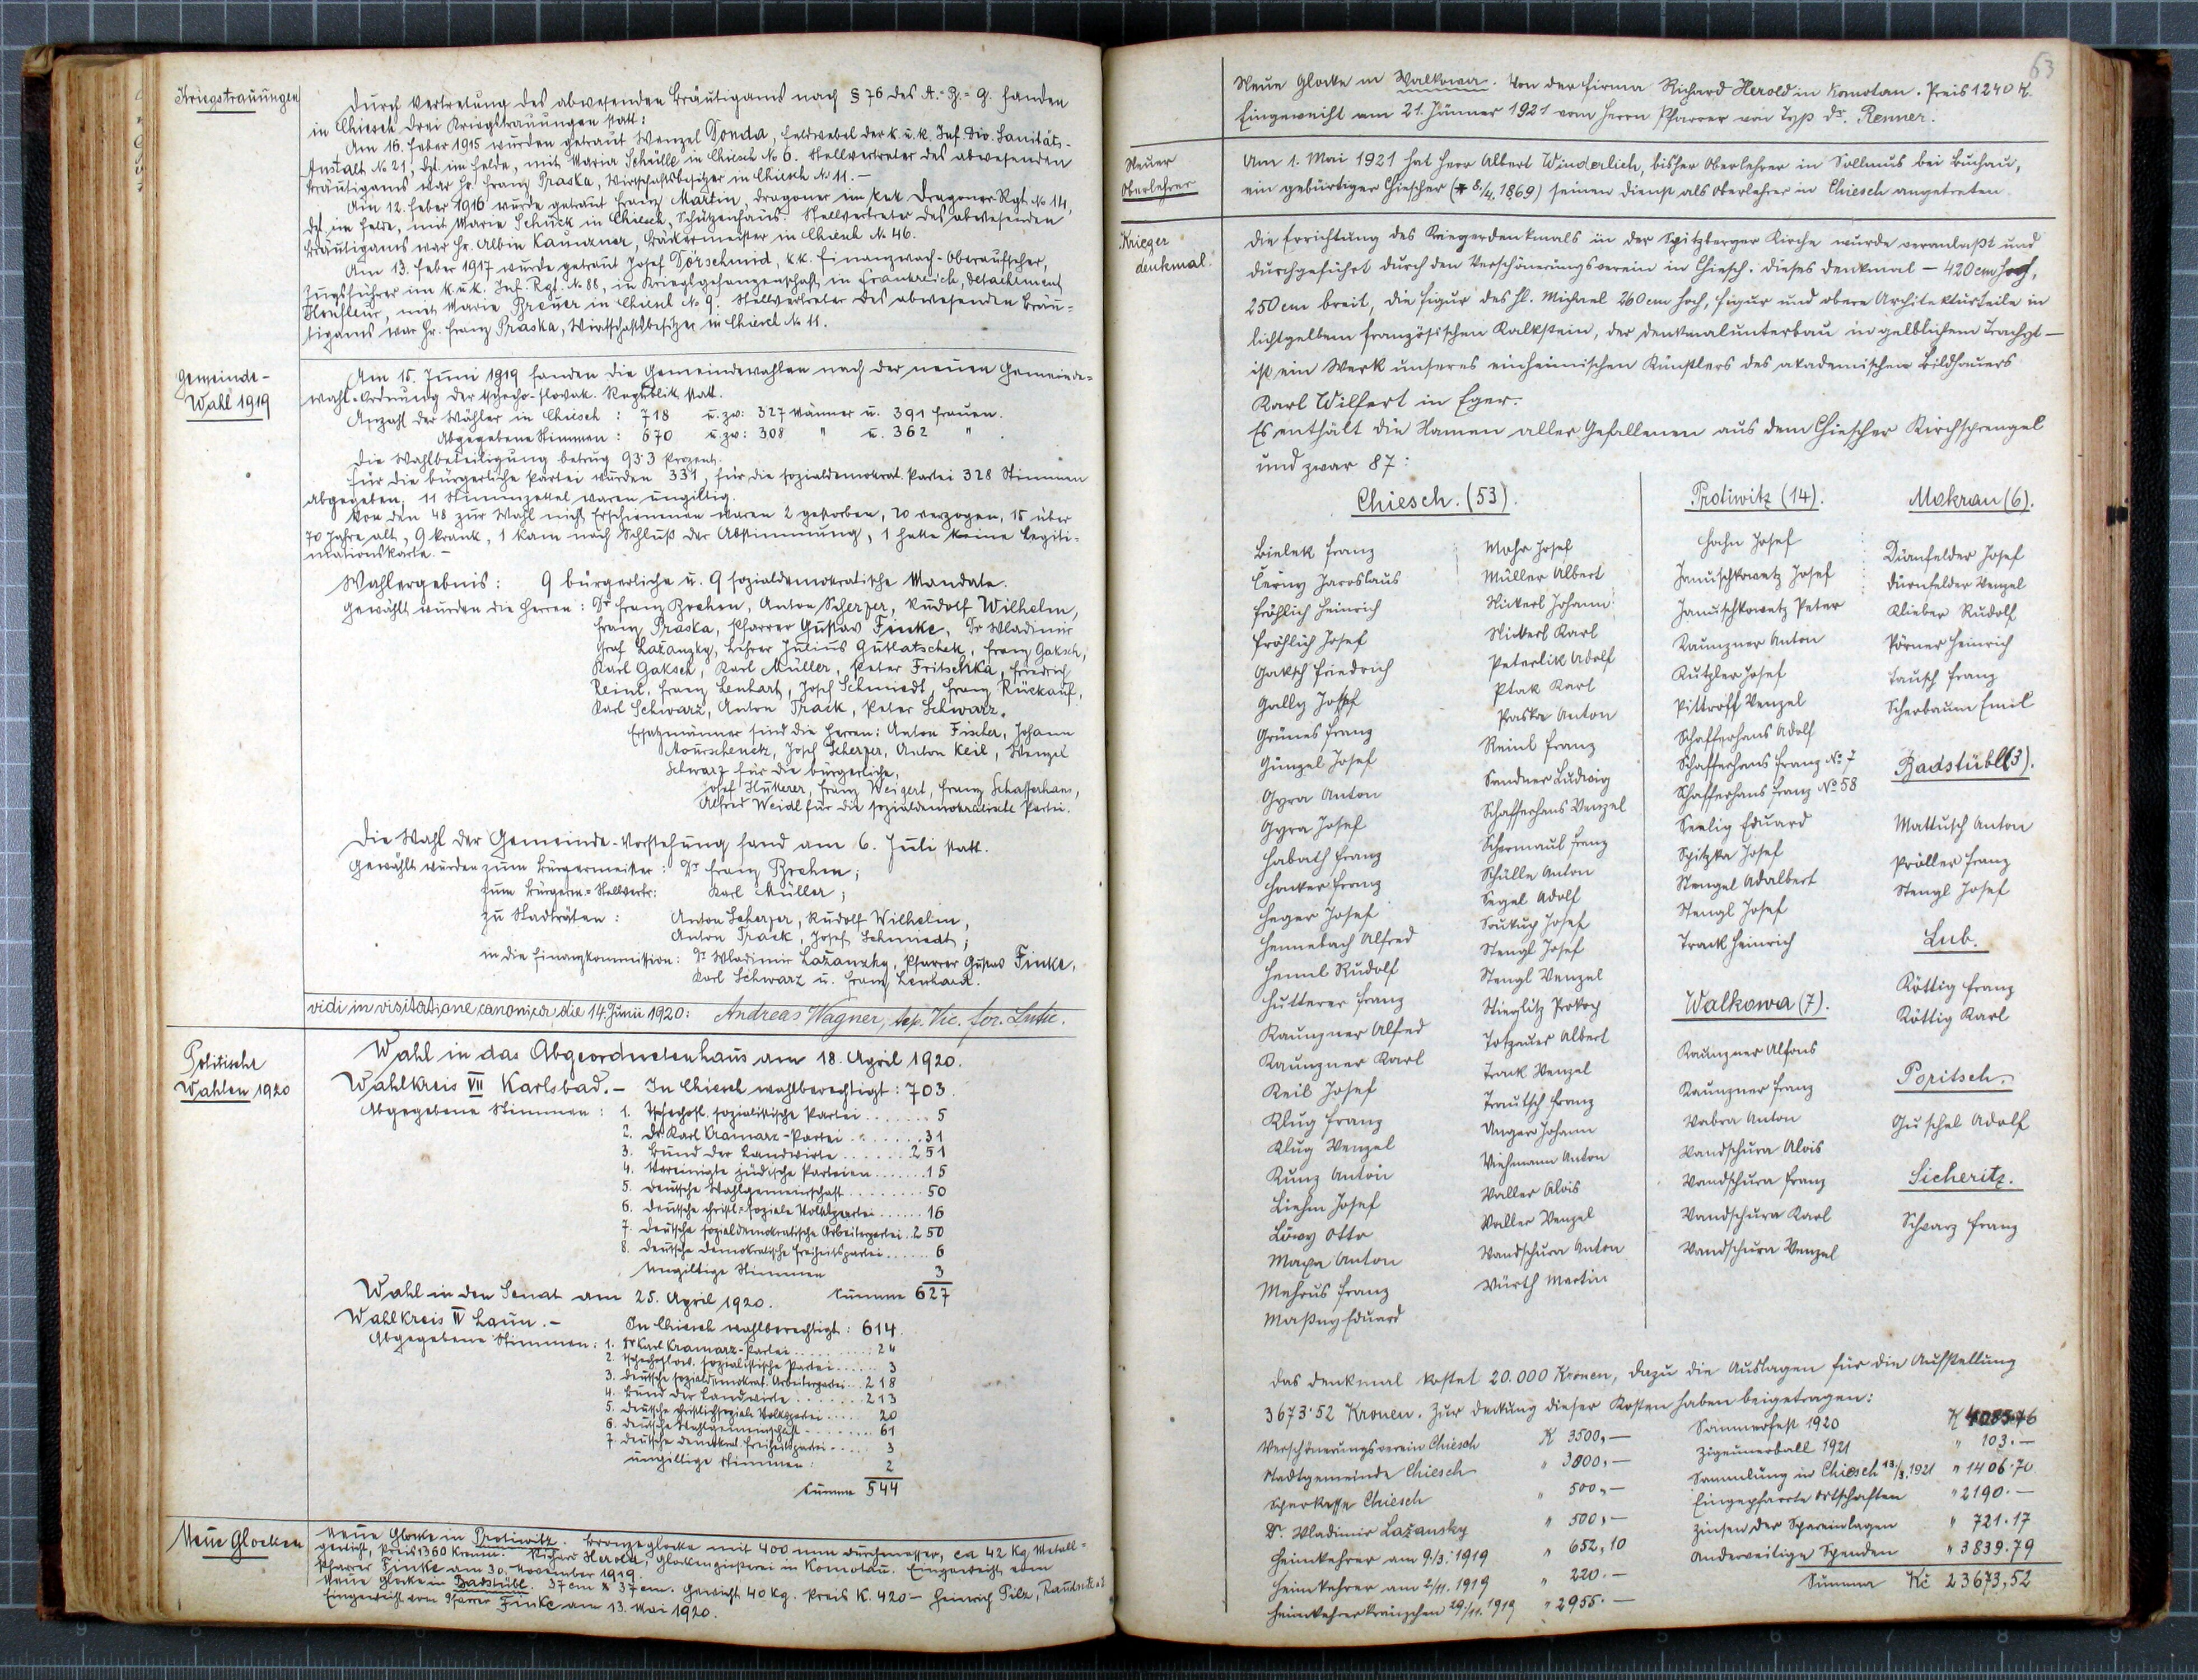 Kriegstrauungen
Durch Vertretung des abwesenden Bräutigams nach § 76 des A.-B.-G. fanden
in Chiesch drei Kriegstrauungen statt:
Am 16. Feber 1915 wurden getraut Wenzel Donda, Feldwebel der k.u.k. Inf. Div. Sanitäts-
Anstalt No 21, dzt. im Felde, mit Maria Schülle in Chiesch No 6. Stellvertreter des abwesenden
Bräutigams war Hr. Franz Praska, Wirtschaftsbesitzer in Chiesch No 11.-
Am 12. Feber 1916 wurde getraut Franz Martin, Dragoner im k.u.k. Dragoner-Rgt. No 14,
dzt. im Felde, mit Marie Schück in Chiesch, Schützenhaus. Stellvertreter des abwesenden
Bräutigams war Hr. Albin Kaunzner, Bäckermeister in Chiesch No 46.
Am 13. Feber 1917 wurde getraut Josef Dörschmid, k.k. Finanzwach-Oberaufseher,
Zugsführer im k.u.k. Inf. Rgt. No 88, in Kriegsgefangenschaft in Frankreich, Detachement
Honfleur, mit Marie Breuer in Chiesch No 9. Stellvertreter des abwesenden Bräu-
tigams war Hr. Franz Praska, Wirtschaftsbesitzer in Chiesch No 11.
Gemeinde-
Wahl 1919
Am 15. Juni 1919 fanden die Gemeindewahlen nach der neuen Gemeinde-
wahl-Ordnung der tschecho-slovak. Republik statt.
Anzahl der Wähler in Chiesch : 718 u. zw: 327 Männer u. 391 Frauen.
Abgegebene Stimmen : 670 u. zw: 308 " u. 362 " .
Die Wahlbeteiligung betrug 93·3 Prozent.
Für die bürgerliche Partei wurden 331, für die sozialdemokrat. Partei 328 Stimmen
abgegeben; 11 Stimmzettel waren ungiltig.
Von den 48 zur Wahl nicht Erschienenen waren 2 gestorben, 20 verzogen, 15 über
70 Jahre alt, 9 krank, 1 kam nach Schluß der Abstimmung, 1 hatte keine Legiti-
mationskarte.-
Wahlergebnis: 9 bürgerliche u. 9 sozialdemokratische Mandate.
Gewählt wurden die Herren: Dr Franz Brehm, Anton Scherzer, Rudolf Wilhelm,
Franz Praska, Pfarrer Gustav Finke, Dr Wladimir
Graf Lažanzky, Lehrer Julius Gutlatschek, Franz Gaksch,
Karl Gaksch, Karl Müller, Peter Fritschka, Friedrich
Reinl, Franz Lenhart, Josef Schmiedt, Franz Rückauf,
Karl Schwarz, Anton Track, Peter Schwarz.
Ersatzmänner sind die Herren: Anton Fischer, Johann
Mourschenek, Josef Scherzer, Anton Keil, Wenzel
Schwarz für die bürgerliche,
Josef Hutterer, Franz Weigert, Franz Schafferhans,
Alfred Weidl für die sozialdemokratische Partei.
Die Wahl der Gemeinde-Vorstehung fand am 6. Juli statt.
Gewählt wurden zum Bürgermeister: Dr Franz Brehm;
zum Bürgerm.-Stellvertr: Karl Müller;
zu Stadträten: Anton Scherzer, Rudolf Wilhelm,
Anton Track, Josef Schmiedt;
in die Finanzkommission: Dr Wladimir Lažanzky, Pfarrer Gustav Finke,
Karl Schwarz u. Franz Lenhard.
vidi in visitatione canonica die 14. Junii 1920: Andreas Wagner, Vic. for.
Politische
Wahlen 1920
Wahl in das Abgeordnetenhaus am 18. April 1920.
Wahlkreis VII Karlsbad.- In Chiesch wahlberechtigt: 703.
Abgegebene Stimmen: 1. Tschechosl. sozialistische Partei ....... 5
2. Dr Karl Kramarz-Partei ....... 31
3. Bund der Landwirte ....... 251
4. Vereinigte jüdische Parteien ...... 15
5. Deutsche Wahlgemeinschaft ....... 50
6. Deutsche christl.-soziale Volkspartei ...... 16
7. Deutsche sozialdemokratische Arbeiterpartei .. 250
8. Deutsche demokratische Freiheitspartei ...... 6
Ungiltige Stimmen 3
Summe 627
Wahl in den Senat am 25. April 1920.
Wahlkreis IV Laun.- In Chiesch wahlberechtigt: 614.
Abgegebene Stimmen: 1. Dr Karl Kramarz-Partei ....... 24
2. Tschechoslow. sozialistische Partei ...... 3
3. Deutsche sozialdemokrat. Arbeiterpartei .. 218
4. Bund der Landwirte ....... 213
5. Deutsche christlichsoziale Volkspartei ..... 20
6. Deutsche Wahlgemeinschaft ....... 61
7. Deutsche demokrat. Freiheitspartei .... 3
ungiltige Stimmen: 2
Summe 544
Neue Glocken
Neue Glocke in Protiwitz. Bronzeglocke mit 400 mm Durchmesser, ca 42 Kg Metall-
gewicht, Preis 1360 Kronen. Richard Herold, Glockengießerei in Komotau. Eingeweiht vom
Pfarrer Finke am 30. November 1919.
Neue Glocke in Badstübl. 37 cm x 37 cm. Gewicht 40 kg. Preis K. 420- Heinrich Pilz,
Eingeweiht vom Pfarrer Finke am 13. Mai 1920.
63
Neue Glocke in Walkowa. Von der Firma Richard Herold in Komotau. Preis 1240 K.
Eingeweiht am 21. Jänner 1921 vom Herrn Pfarrer von Typ Dr. Renner.
Neuer
Oberlehrer
Am 1. Mai 1921 hat Herr Albert Winderlich, bisher Oberlehrer in Sollmus bei Buchau,
ein gebürtiger Chiescher (* 8/4. 1869) seinen Dienst als Oberlehrer in Chiesch angetreten.
Krieger
denkmal.
Die Errichtung des Kriegerdenkmals in der Spitzberger Kirche wurde veranlaßt und
durchgeführt durch den Verschönerungsverein in Chiesch. Dieses Denkmal - 420 cm hoch,
250 cm breit, die Figur des hl. Michael 260 cm hoch, Figur und obere Architekturteile in
lichtgelbem französischen Kalkstein, der Denkmalunterbau in gelblichem Trachyt -
ist ein Werk unseres einheimischen Künstlers des akademischen Bildhauers
Karl Wilfert in Eger.
Es enthält die Namen aller Gefallenen aus dem Chiescher Kirchsprengel
und zwar 87:
Chiesch. (53).
Bielek Franz
Černy Jaroslaus
Fröhlich Heinrich
Fröhlich Josef
Gaksch Friedrich
Gally Josef
Grünes Franz
Günzel Josef
Gyra Anton
Gyra Josef
Habath Franz
Hanker Franz
Heger Josef
Hennebach Alfred
Henml Rudolf
Hutterer Franz
Kaunzner Alfred
Kaunzner Karl
Keil Josef
Klug Franz
Klug Wenzel
Kunz Anton
Liehm Josef
Löwy Otto
Maxa Anton
Mehrus Franz
Maßny Eduard
Mohr Josef
Müller Albert
Nickerl Johann
Nickerl Karl
Peterlik Adolf
Ptak Karl
Praska Anton
Reinl Franz
Sandner Ludwig
Schafferhans Wenzel
Schermaul Franz
Schülle Anton
Segel Adolf
Soukup Josef
Stengl Josef
Stengl Wenzel
Stieglitz Prokop
Totzauer Albert
Track Wenzel
Trautsch Franz
Unger Johann
Viehmann Anton
Waller Alois
Waller Wenzel
Wandschura Anton
Würth Martin
Protiwitz (14).
Hahn Josef
Januschkowetz Josef
Januschkowetz Peter
Kaunzner Anton
Kutzler Josef
Pittroff Wenzel
Schafferhans Adolf
Schafferhans Franz No 7
Schafferhans Franz No 58
Seelig Eduard
Spitzka Josef
Stengel Adalbert
Stengl Josef
Track Heinrich
Walkowa (7).
Kaunzner Alfons
Kaunzner Franz
Wabra Anton
Wandschura Alois
Wandschura Franz
Wandschura Karl
Wandschura Wenzel
Mokrau (6).
Dürnfelder Josef
Dürnfelder Wenzel
Klieber Rudolf
Pörner Heinrich
Tausch Franz
Scherbaum Emil
Badstübl (3).
Mattusch Anton
Pröller Franz
Stengl Josef
Lub.
Köttig Franz
Köttig Karl
Poritsch.
Guschel Adolf
Sicheritz.
Schwarz Franz
Das Denkmal kostet 20.000 Kronen, dazu die Auslagen für die Aufstellung
3673·52 Kronen. Zur Deckung dieser Kosten haben beigetragen:
Verschönerungsverein Chiesch K 3500,-
Stadtgemeinde Chiesch " 3000,-
Sparkasse Chiesch " 500,-
Dr. Wladimir Lažansky " 500,-
Heimkehrer am 9./3. 1919 " 652,10
Heimkehrer am 2/11. 1919 " 220.-
Heimkehrerkränzchen 29./11. 1919 " 2955.-
Sommerfest 1920 K
Zigeunerball 1921 " 103.-
Sammlung in Chiesch 13./3. 1921 " 1406·70
Eingepfarrte Ortschaften " 2190.-
Zinsen der Spareinlagen " 721.17
Anderweitige Spenden " 3839.79
Summa Kč 23673,52